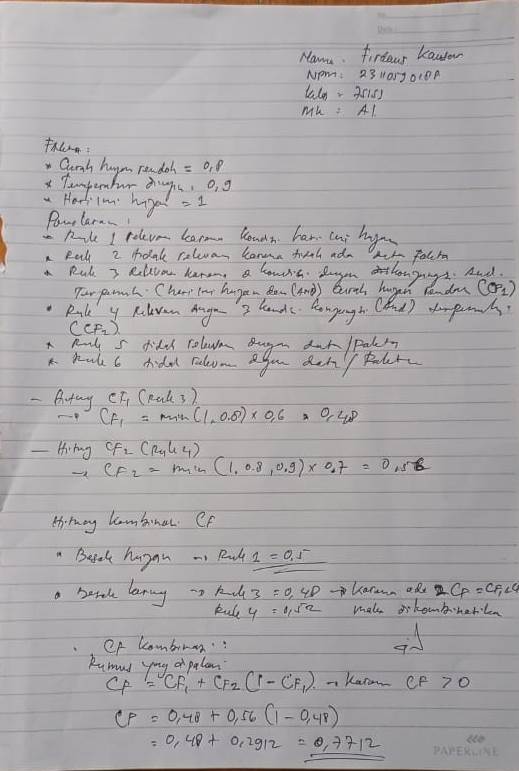 No.
Date.
Nama : Firdaus Kautsar
NPM :
Kelas :
MK : AI
Fakta :
* Curah hujan rendah = 0,8
* Temperatur dingin = 0,9
* Hari ini hujan = 1
Penalaran :
* Rule 1 relevan karena kondisi hari ini hujan
* Rule 2 tidak relevan karena tidak ada data fakta
* Rule 3 Relevan karena 2 kondisi dengan And.
Terpenuhi. (hari ini hujan dan (AND) Curah hujan rendah (CF1)
* Rule 4 Relevan dengan 3 kondisi (And) terpenuhi.
(CF2)
* Rule 5 tidak relevan dengan data/fakta
* Rule 6 tidak relevan dgan data/fakta
- Hitung CF1 (Rule 3)
→ CF1 = min (1, 0.8) x 0,6 = 0,48
- Hitung CF2 (Rule 4)
→ CF2 = min (1, 0.8, 0,9) x 0.7 = 0,56
Hitung kombinasi CF
* Besok hujan → Rule 1 = 0.5
* Besok kering → Rule 3 = 0,48 → karena ada 2 CF = CF1
Rule 4 = 0,52 maka dikombinasikan
CF kombinasi :
Rumus yang dipakai:
CF = CF1 + CF2 (1 - CF1) → karena CF > 0
CF = 0,48 + 0,56 (1 - 0,48)
= 0,48 + 0,2912 = 0,7712
PAPERLINE